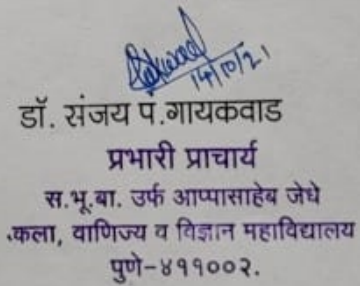 14/10/21
डॉ. संजय प.गायकवाड
प्रभारी प्राचार्य
स.भू.बा. उर्फ आप्पासाहेब जेधे
कला, वाणिज्य व विज्ञान महाविद्यालय
पुणे-४११००२.